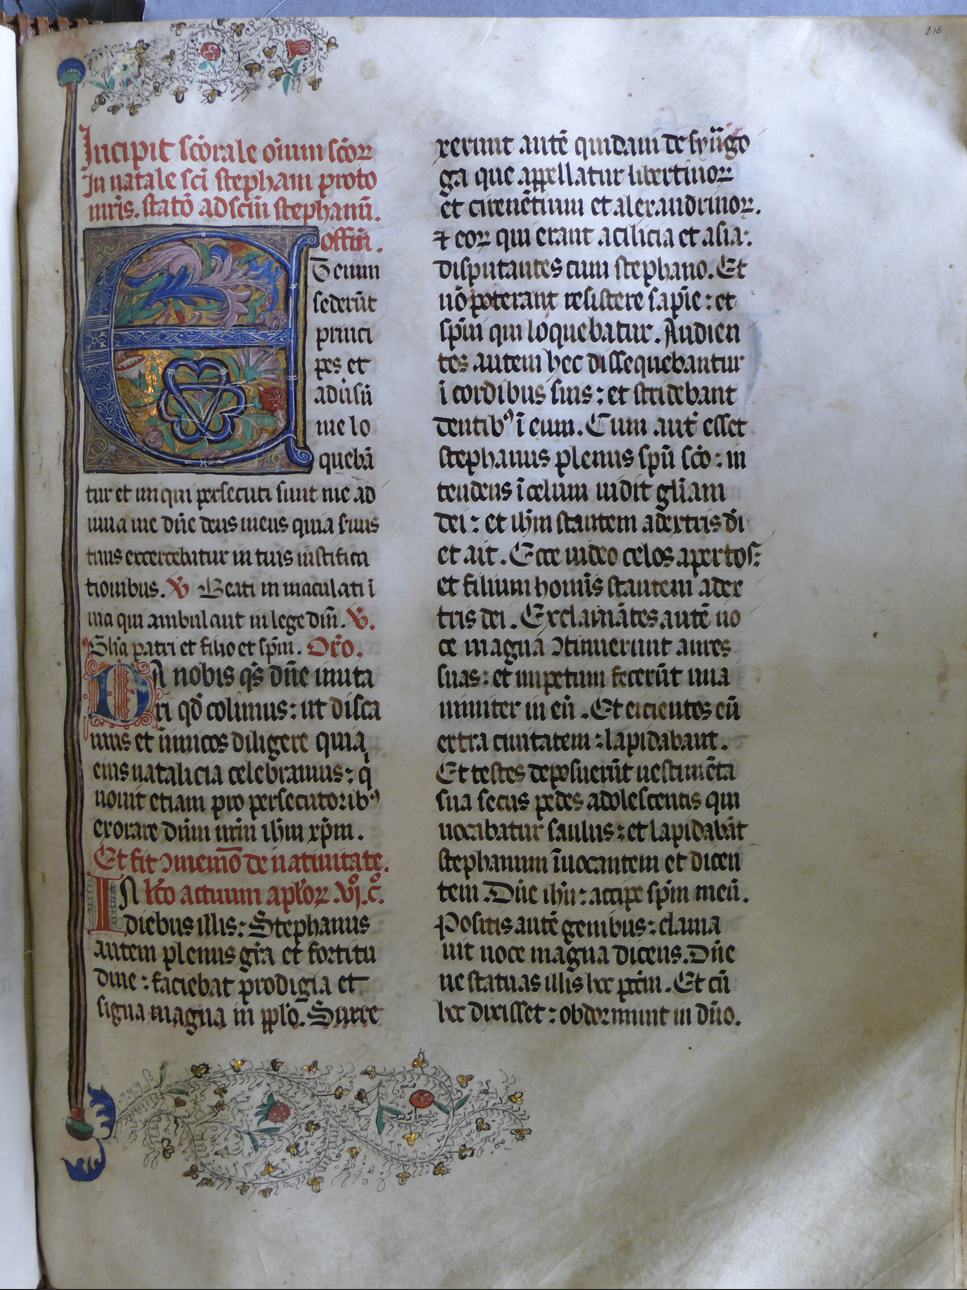 216
Incipit sc̄orale om̄ium sc̄oꝝ
In natale sc̄i stephani proto
mr̄is. statō ad sc̄m stephanū.
offm̄.
Et enim
sederūt
princi
pes et
adūsū
me lo
quebā
tur et iniqui persecuti sunt me ad
iuua me dn̄e deus meus quia seruus
tuus excercebatur in tuis iustifica
tionibus. V Beati in maculati ī
uia qui ambulant in lege dn̄i. V.
Glīa patri et filio et spm̄. Orō.
DA nobis qs̄ dn̄e imita
ri qd̄ colimus: ut disca
mus et īimicos diligere quia
eius natalicia celebramus: q̇
nouit etiam pro persecutoribꝰ
exorare dn̄m nr̄m ih̄m xp̄m.
Et fit ꝯmemō de natiuitate.
IN lc̄o actuum apl̄oꝝ. Vi. c̄.
diebus illis: Stephanus
autem plenus grā et fortitu
dine: faciebat prodigia et
signa magna in pplō. Surre
xerunt autē quidam de synāgo
ga que appellatur libertinoꝝ
et cirenētium et alexandrinoꝝ.
⁊ eoꝝ qui erant a cilicia et asia:
disputantes cum stephano. Et
nō poterant resistere sapīe: et
spm̄ qui loquebatur. Audien
tes autem hec dissequebantur
ī cordibus suis: et stridebant
dentibꝰ ī eum. Cum aut̄ esset
stephanus plenus spū scō: in
tendens ī celum uidit glīam
dei: et ih̄m stantem a dextris dī
et ait. Ecce uideo celos apertos:
et filium hominis stantem a dex
tris dei. Exclamātes autē uo
ce magna ꝯtinuerunt aures
suas: et impetum fecerūt una
nimiter in eū. Et eicientes eū
extra ciuitatem: lapidabant.
Et testes deposuerūt uestimēta
sua secus pedes adolescentis qui
uocabatur saulus: et lapidabāt
stephanum īuocantem et dicen
tem. Dn̄e ih̄u: accipe spm̄ meū.
Positis autē genibus: clama
uit uoce magna dicens. Dn̄e
ne statuas illis hoc pctm̄. Et cū
hoc dixisset: obdormiuit in dn̄o.